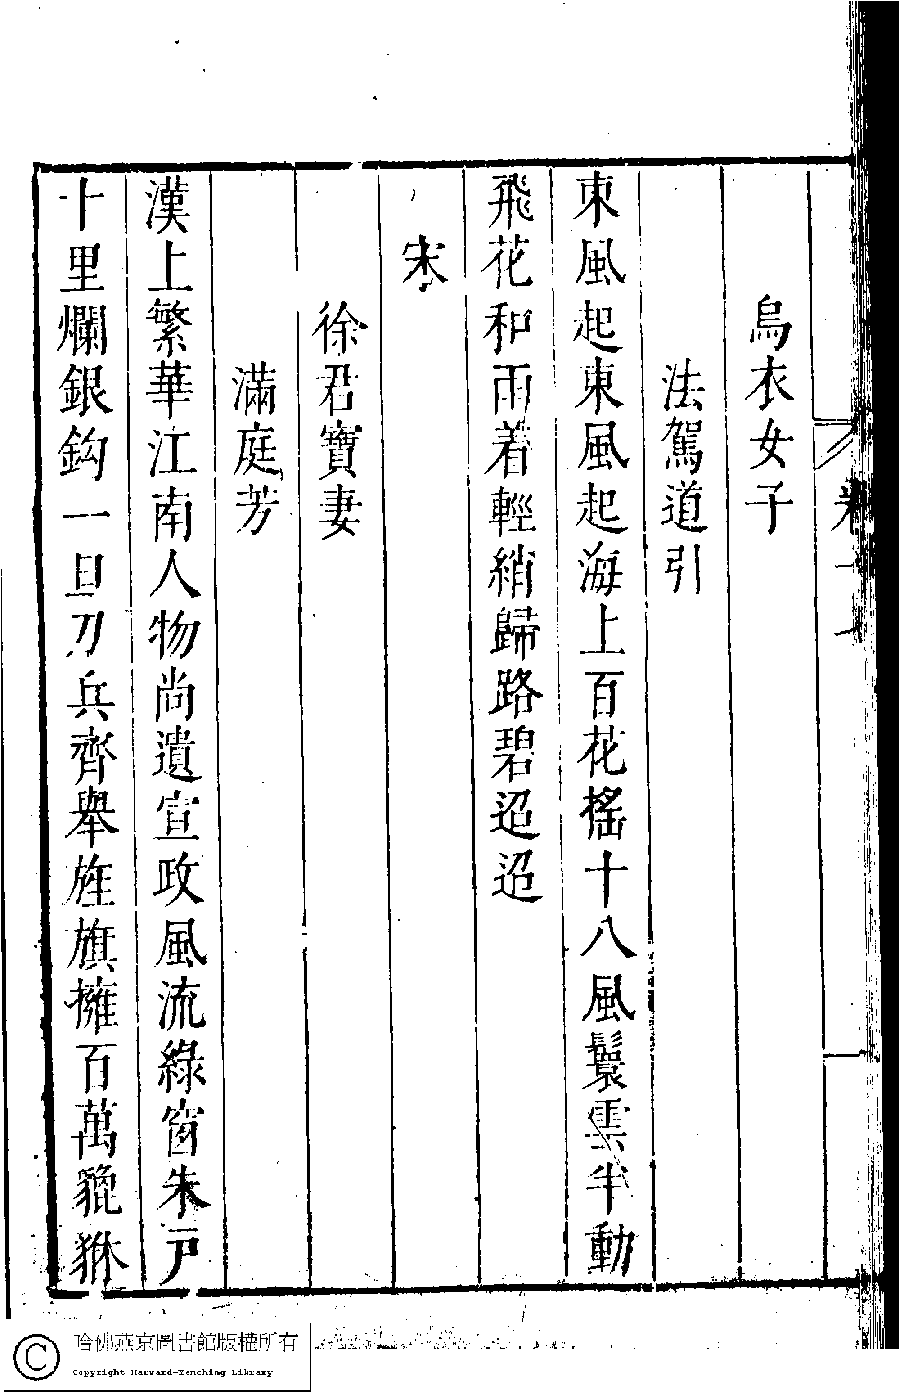 烏衣女子
法駕道引
東風起東風起海上百花搖十八風鬟雲半動
飛花和雨着輕綃歸路碧迢迢
宋
徐君寶妻
滿庭芳
漢上繁華江南人物尚遺宣政風流綠窗朱戸
十里爛銀鈎一旦刀兵齊舉旌旗擁百萬貔貅
哈佛燕京圖書館版權所有
Copyright Harvard-Yenching Library